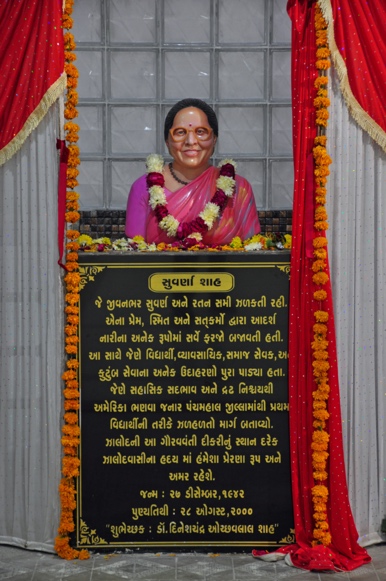 સુવર્ણા શાહ
જે જીવનભર સુવર્ણ અને રતન સમી ઝળકતી રહી.
એના પ્રેમ, સ્મિત અને સત્કર્મો દ્વારા આદર્શ
નારીના અનેક રૂપોમાં સર્વે ફરજો બજાવતી હતી.
આ સાથે જેણે વિદ્યાર્થી,વ્યાવસાયિક,સમાજ સેવક,અ
કુટુંબ સેવાના અનેક ઉદાહરણો પુરા પાડ્યા હતા.
જેણે સહાસિક સદભાવ અને દ્રઢ નિશ્ચયથી
અમેરિકા ભણવા જનાર પંચમહાલ જીલ્લામાંથી પ્રથમ
વિદ્યાર્થીની તરીકે ઝળહળતો માર્ગ બતાવ્યો.
ઝાલોદની આ ગૌરવવંતી દીકરીનું સ્થાન દરેક
ઝાલોદવાસીના હૃદય માં હંમેશા પ્રેરણા રૂપ અને
અમર રહેશે.
જન્મ : ૨૭ ડીસેમ્બર,૧૯૪૨
પુણ્યતિથી : ૨૮ ઓગસ્ટ,૨૦૦૦
"શુભેચ્છક : ડૉ.દિનેશચંદ્ર ઓચ્છવલાલ શાહ"